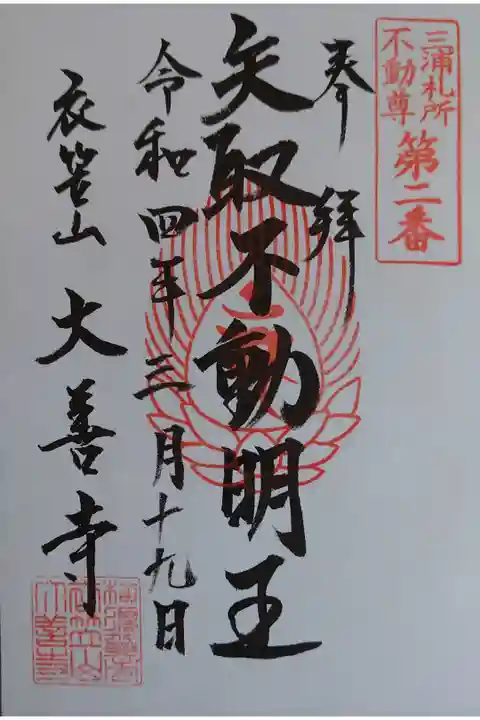 三浦札所
不動尊
第二番
奉拝
矢取不動明王
令和四年三月十九日
衣笠山 大善寺